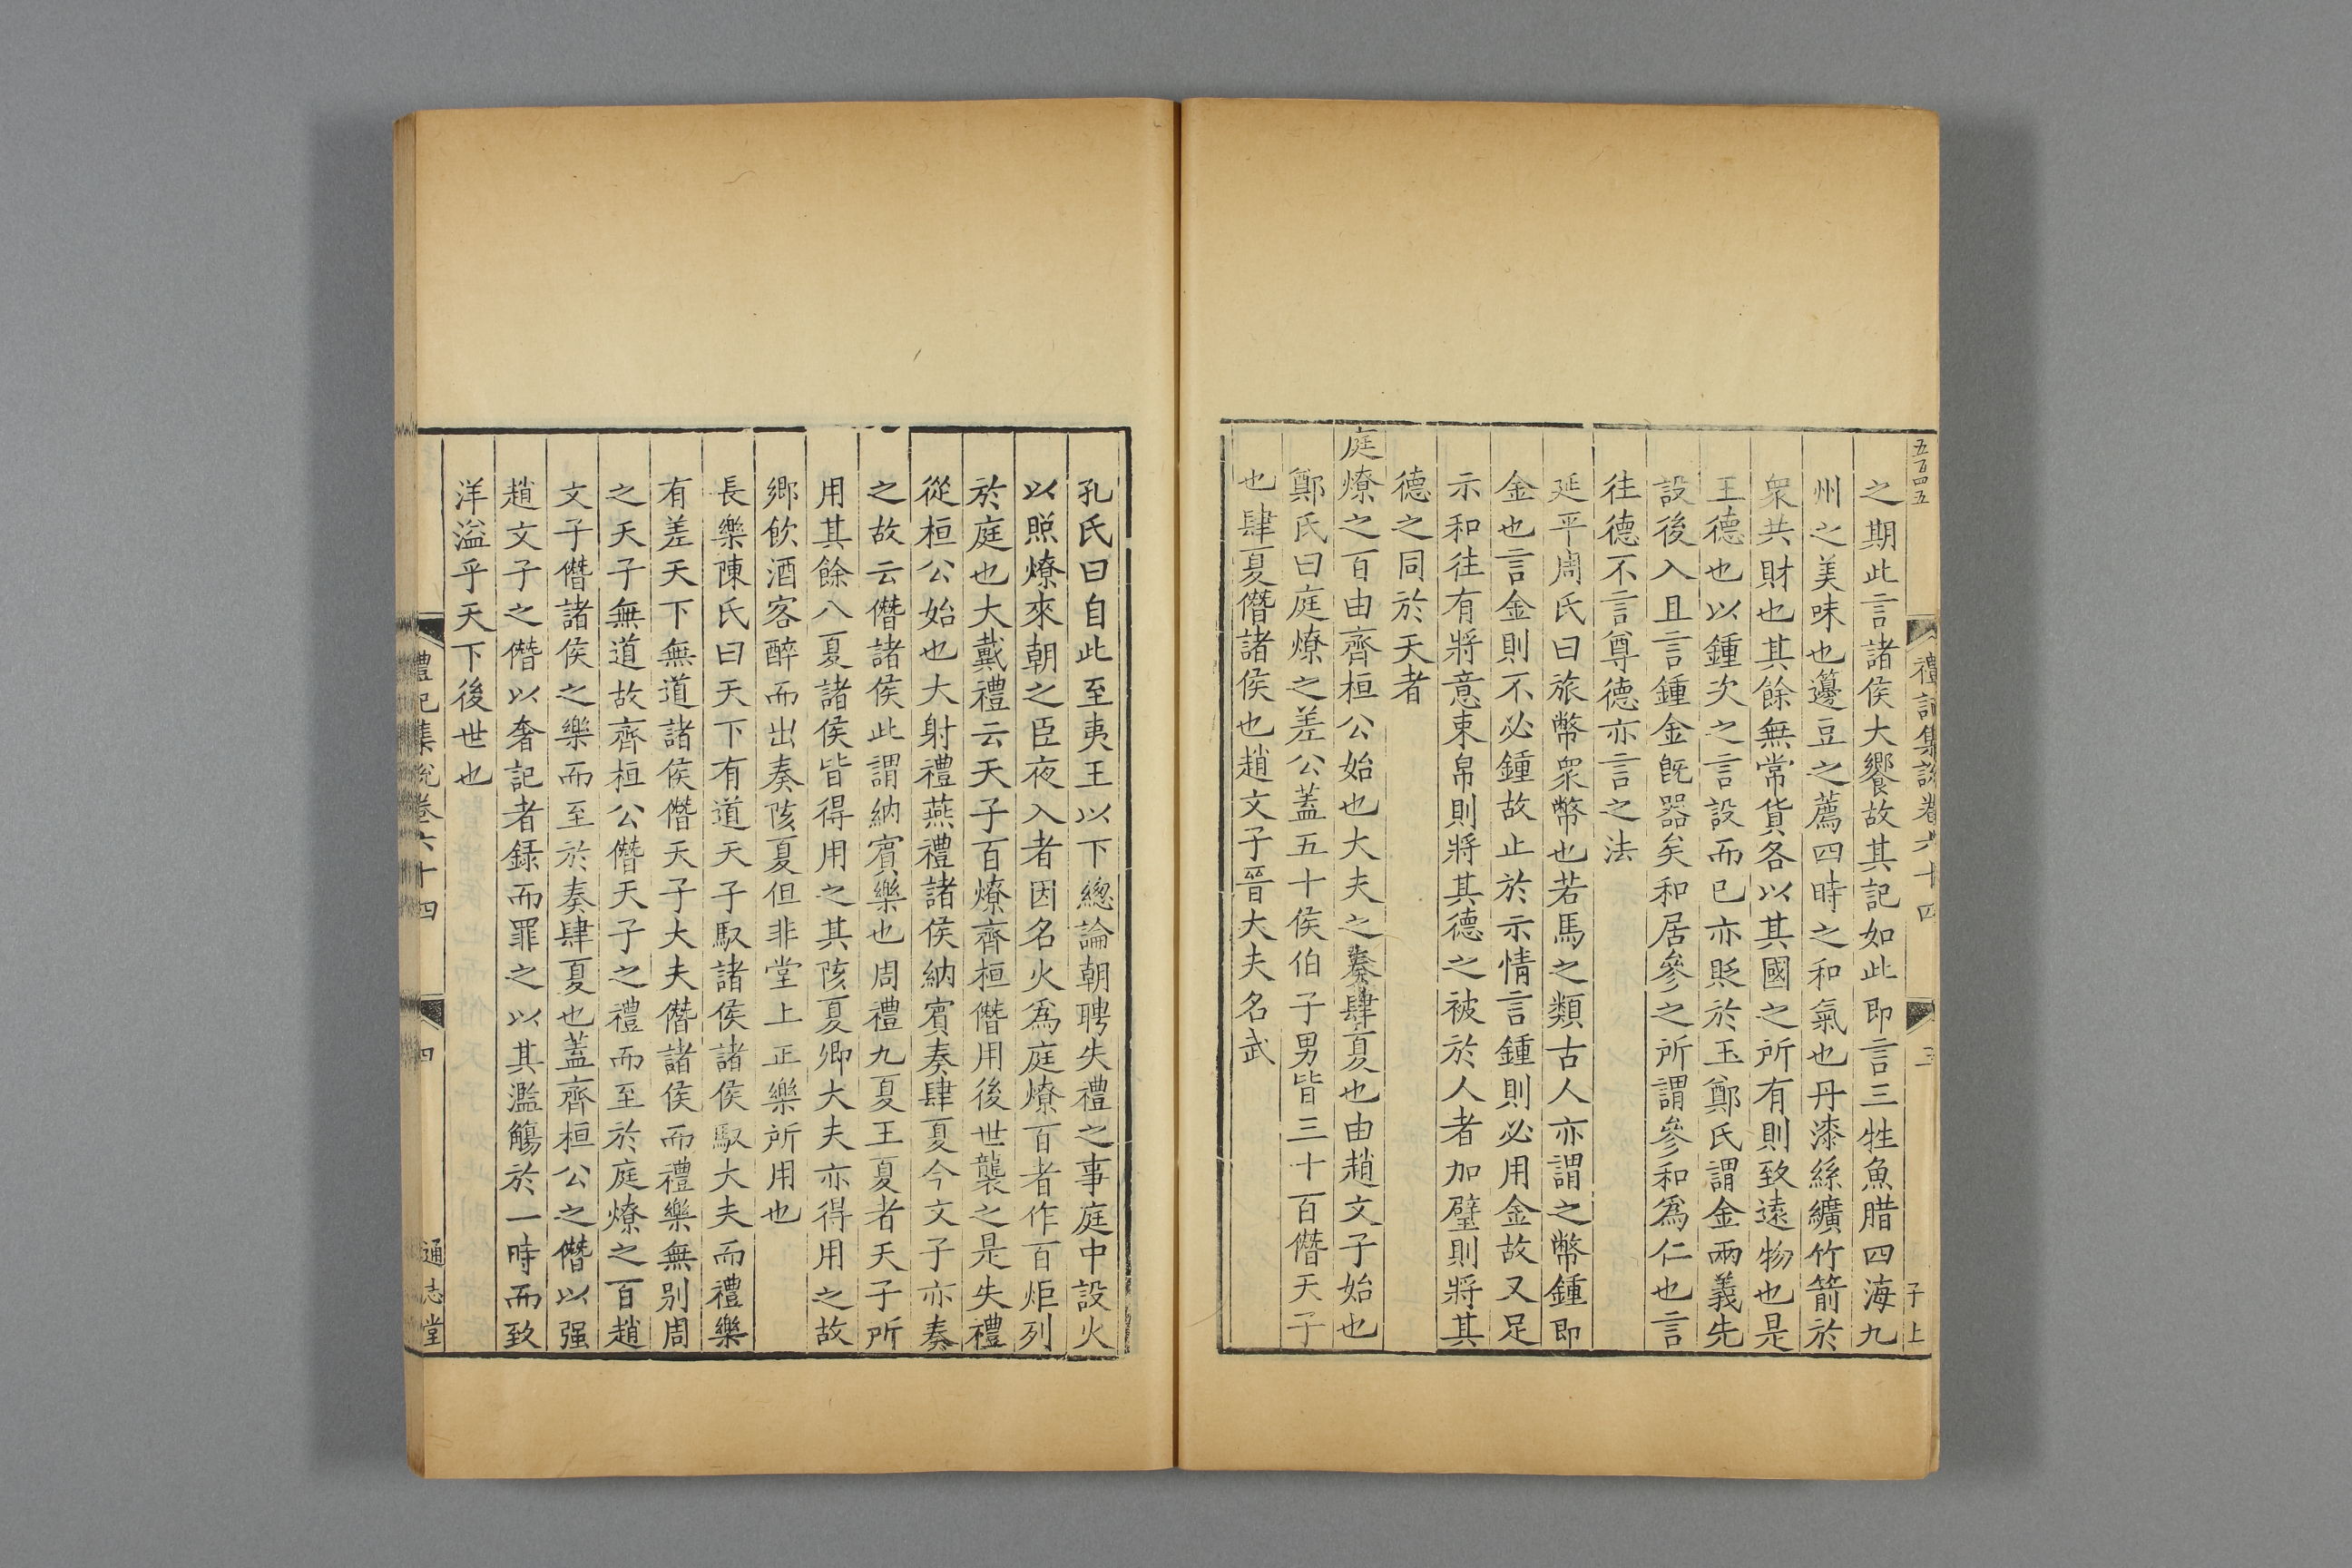 五百四五
禮記集說卷六十四
三
子上
之期此言諸侯大饗故其記如此即言三牲魚腊四海九
州之美味也籩豆之薦四時之和氣也丹漆絲纊竹箭於
衆共財也其餘無常貨各以其國之所有則致遠物也是
王德也以鍾次之言設而已亦貶於玉鄭氏謂金兩義先
設後入且言鍾金旣器矣和居參之所謂參和爲仁也言
往德不言尊德亦言之法
延平周氏曰旅幣衆幣也若馬之類古人亦謂之幣鍾即
金也言金則不必鍾故止於示情言鍾則必用金故又足
示和往有將意束帛則將其德之被於人者加璧則將其
德之同於天者
庭燎之百由齊桓公始也大夫之奏肆夏也由趙文子始也
鄭氏曰庭燎之差公蓋五十侯伯子男皆三十百僭天子
也肆夏僭諸侯也趙文子晉大夫名武
孔氏曰自此至夷王以下總論朝聘失禮之事庭中設火
以照燎來朝之臣夜入者因名火爲庭燎百者作百炬列
於庭也大戴禮云天子百燎齊桓僭用後世襲之是失禮
從桓公始也大射禮燕禮諸侯納賓奏肆夏今文子亦奏
之故云僭諸侯此謂納賓樂也周禮九夏王夏者天子所
用其餘八夏諸侯皆得用之其陔夏卿大夫亦得用之故
鄉飲酒客醉而出奏陔夏但非堂上正樂所用也
長樂陳氏曰天下有道天子馭諸侯諸侯馭大夫而禮樂
有差天下無道諸侯僭天子大夫僭諸侯而禮樂無别周
之天子無道故齊桓公僭天子之禮而至於庭燎之百趙
文子僭諸侯之樂而至於奏肆夏也蓋齊桓公之僭以强
趙文子之僭以奢記者録而罪之以其濫觴於一時而致
洋溢乎天下後世也
禮記集說卷六十四
四
通志堂